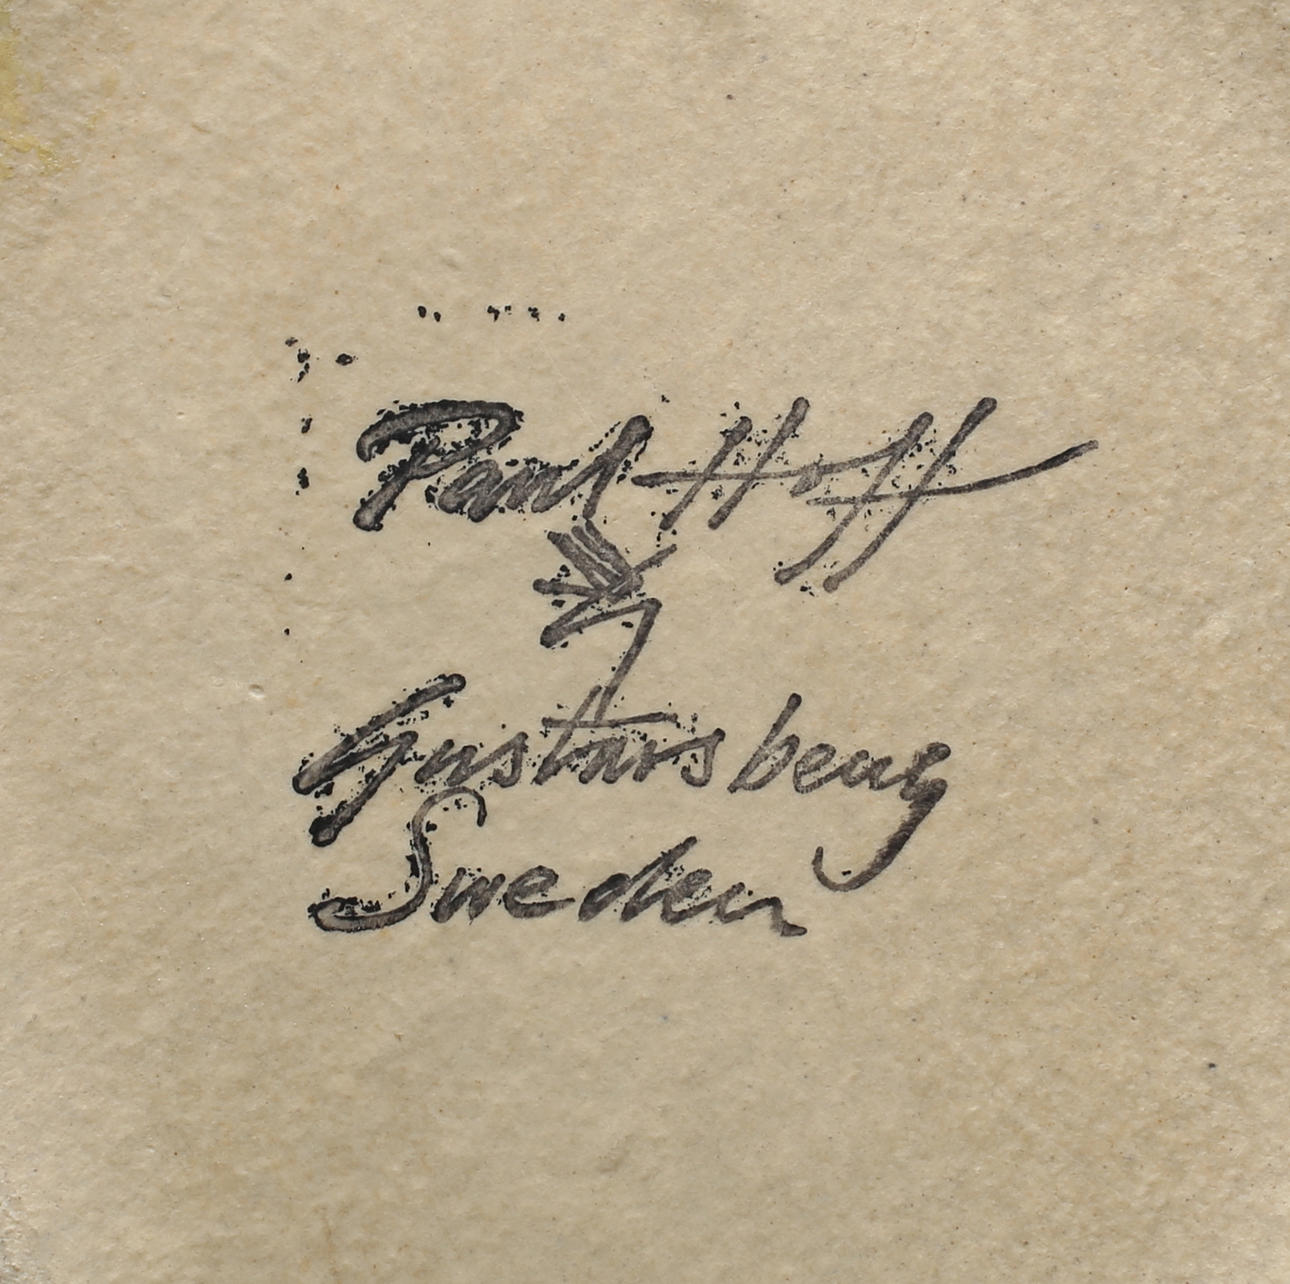 Paul Hoff
Gustavsberg
Sweden